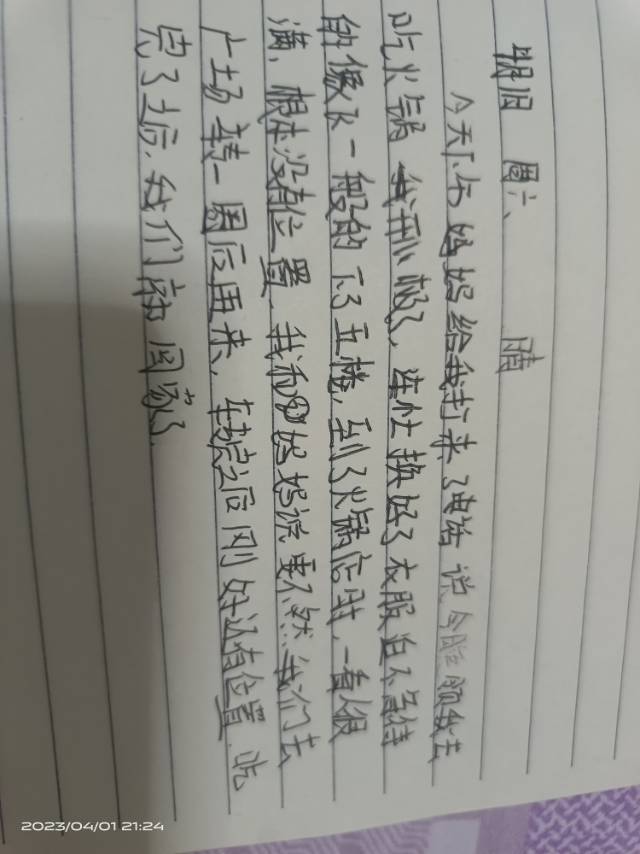 明日 周六 晴
今天下午妈妈给我打来了电话说今晚领我去
吃火锅 我开心极了，连忙换好了衣服迫不急待
的像飞一般的下了五楼，到了火锅店时，一看人很
满，根本没有位置，我和妈妈说要不然…我们去
广场转一圈后再来，转完之后刚好还有位置，吃
完了之后，我们就回家了.
2023/04/01 21:24